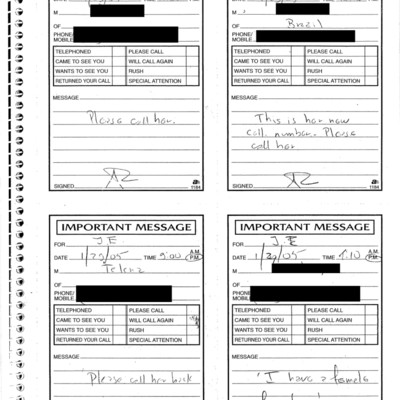 M
OF
PHONE/
MOBILE
TELEPHONED PLEASE CALL
CAME TO SEE YOU WILL CALL AGAIN
WANTS TO SEE YOU RUSH
RETURNED YOUR CALL SPECIAL ATTENTION
MESSAGE
Please call her.
SIGNED
1184
M
OF Brazil
PHONE/
MOBILE
TELEPHONED PLEASE CALL
CAME TO SEE YOU WILL CALL AGAIN
WANTS TO SEE YOU RUSH
RETURNED YOUR CALL SPECIAL ATTENTION
MESSAGE
This is her new
cell. number. Please
call her
SIGNED
1184
IMPORTANT MESSAGE
FOR J.E
DATE 1/29/05 TIME 9:00 A.M. P.M.
M
OF
PHONE/
MOBILE
TELEPHONED PLEASE CALL
CAME TO SEE YOU WILL CALL AGAIN
WANTS TO SEE YOU RUSH
RETURNED YOUR CALL SPECIAL ATTENTION
MESSAGE
Please call her back
IMPORTANT MESSAGE
FOR J.E
DATE 1/29/05 TIME 9:10 A.M. P.M.
M
OF
PHONE/
MOBILE
TELEPHONED PLEASE CALL
CAME TO SEE YOU WILL CALL AGAIN
WANTS TO SEE YOU RUSH
RETURNED YOUR CALL SPECIAL ATTENTION
MESSAGE
"I have a female